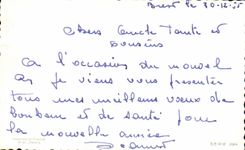 Brest le 30-12-55
Chers Oncle Tante et
Cousins
A l'occasion du nouvel
an je viens vous présenter
tous mes meilleurs vœux de
bonheur et de santé pour
la nouvelle année